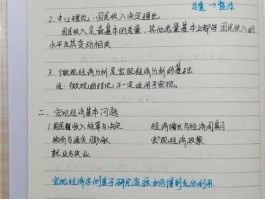 总量→整体
2.中心理论：国民收入决定理论
国民收入是最基本的总量，其他总量基本上都与国民收入的
水平及其变动相关
3.微观经济分析是宏观经济分析的基础
注：微观的结论不一定适用于宏观。
二、宏观经济基本问题
1.国民收入核算与决定 经济增长与经济周期
物价与通货膨胀 宏观经济政策
就业与失业
宏观经济学侧重于研究资源如何得到充分利用